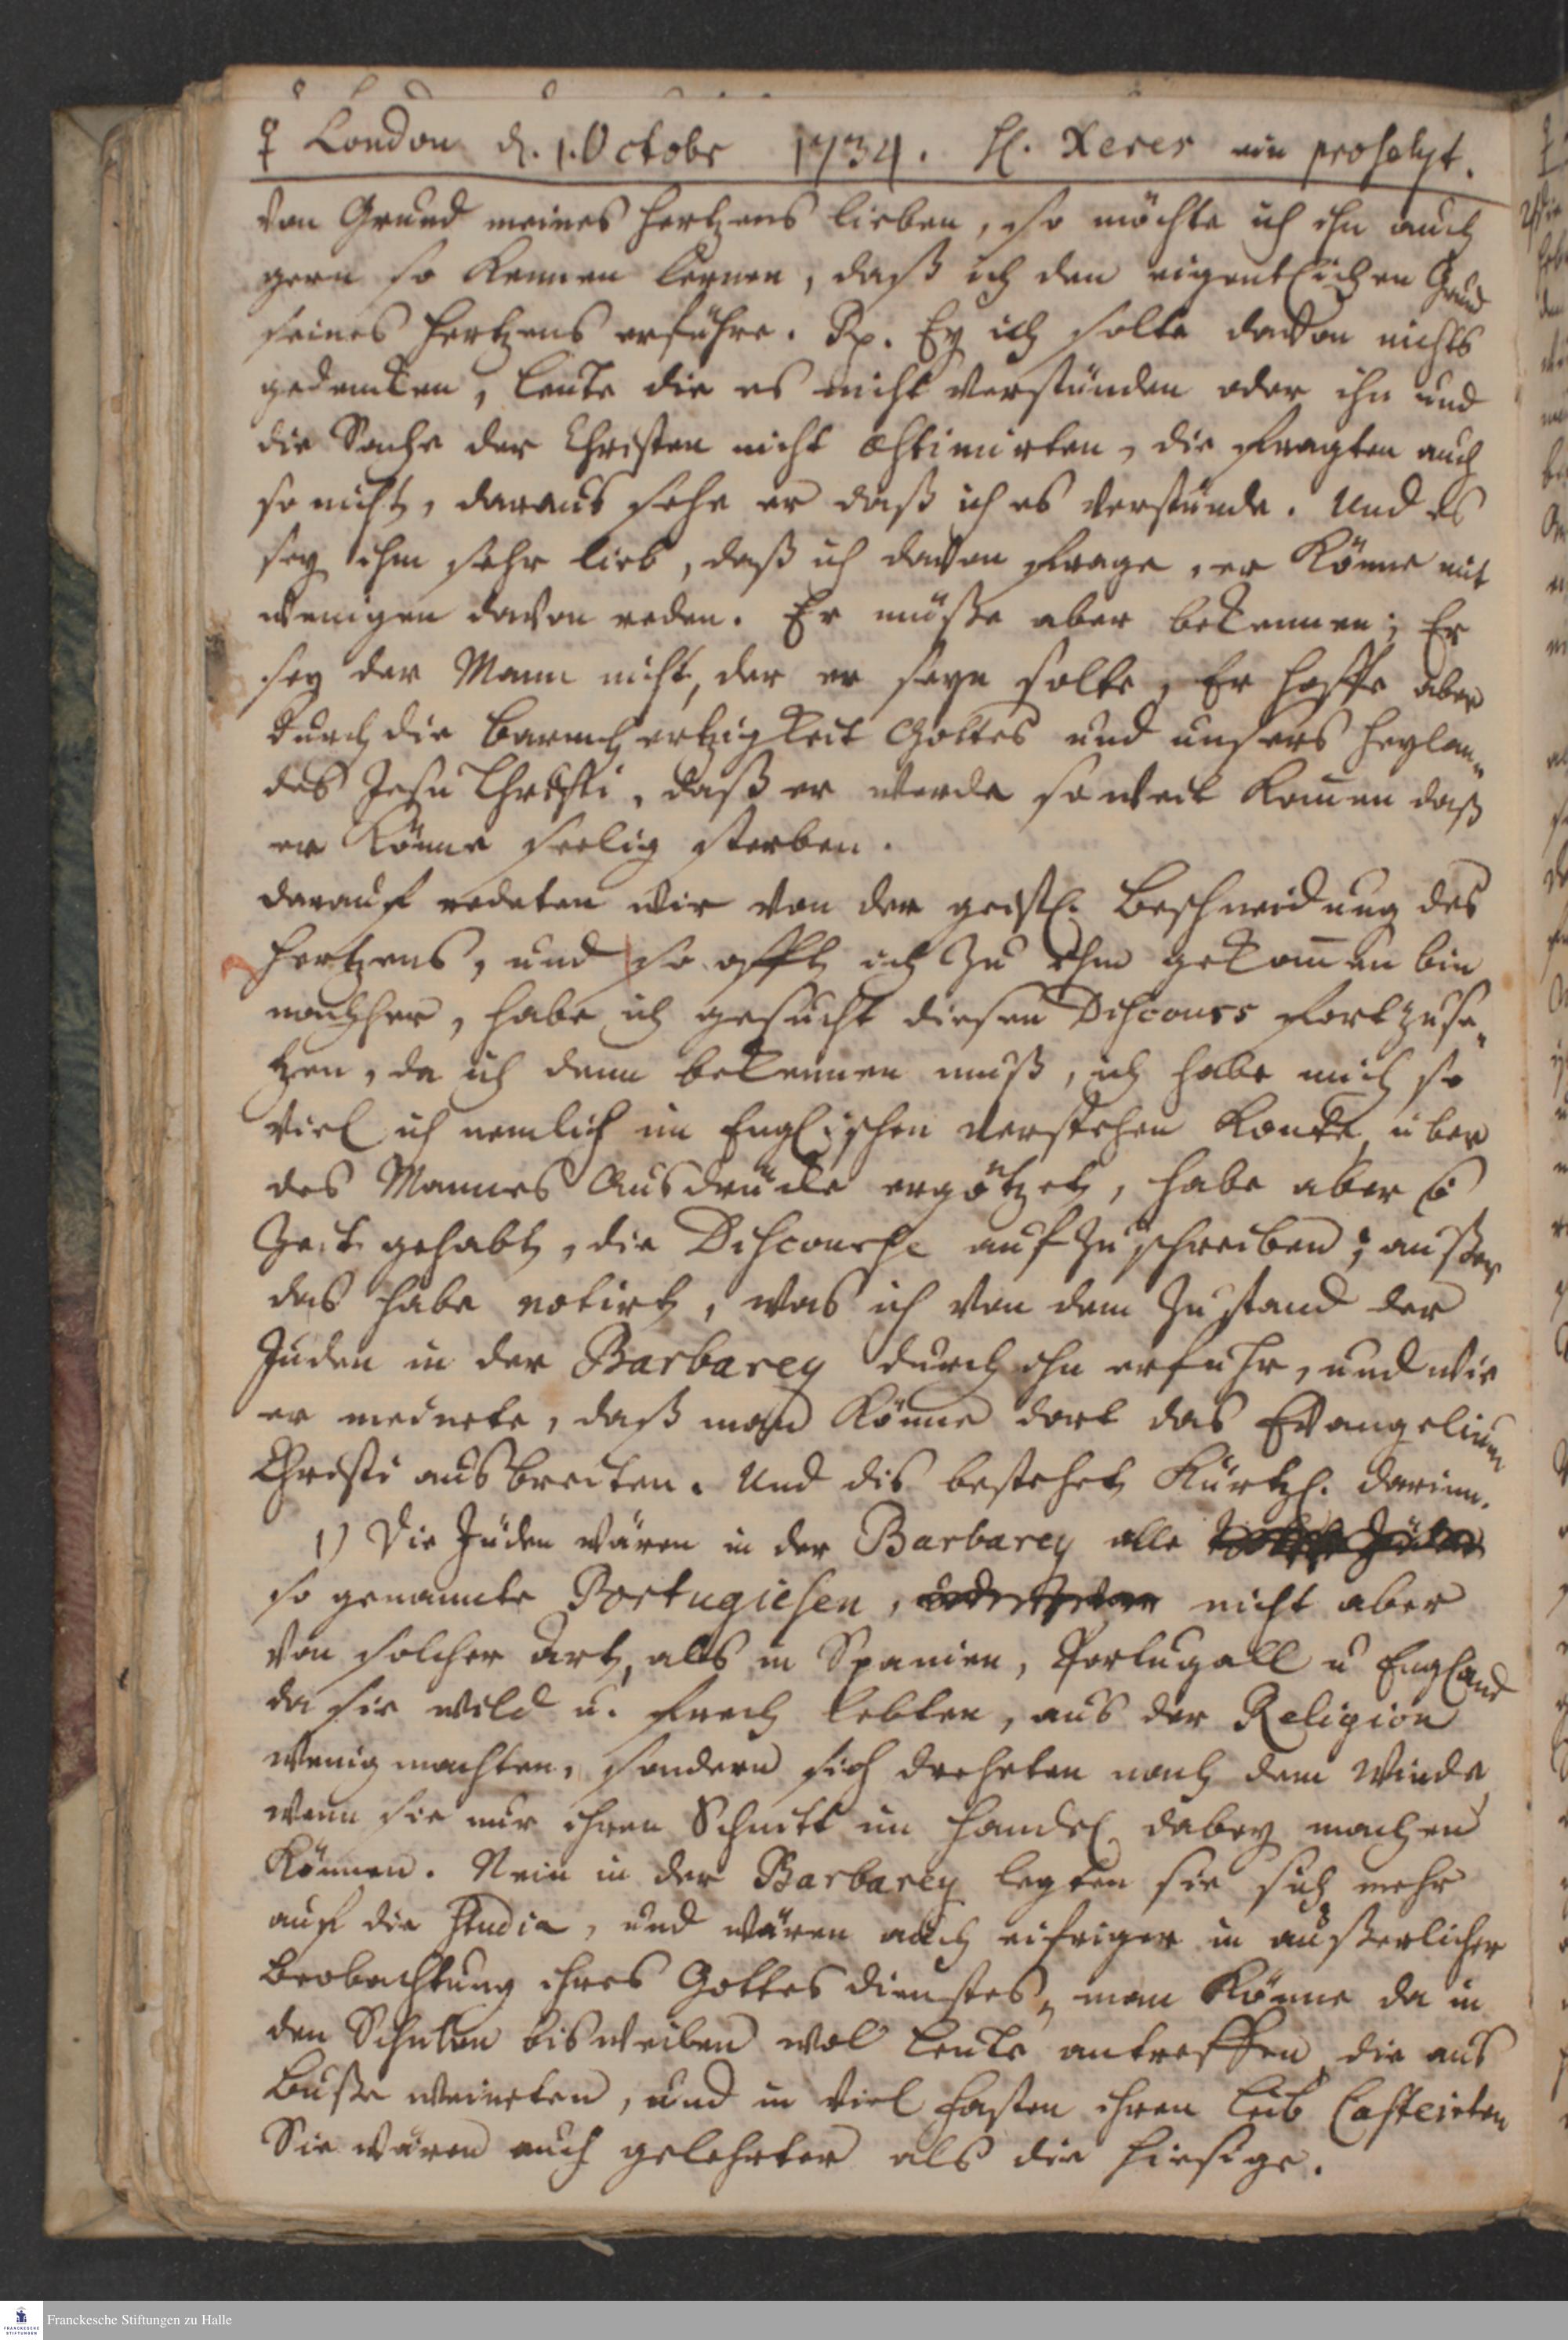 ♀ London d. 1. Octobr 1734. H. Xeres ein proselyt.
von Grund meines Hertzens lieben, so möchte ich ihn auch
gern so kennen lernen, daß ich den eigentlichen Grund
seines Hertzens erführe. Rx. Ey ich solte davon nichts
gedencken, Leute die es nicht verstünden oder ihn und
die Sache der Christen nicht æstimirten, die fragten auch
so nicht, daraus sehe er daß ich es verstünde. Und es
sey ihm sehr lieb, daß ich davon frage, er könne mit
wenigen davon reden. Er müße aber bekennen; Er
sey der Mann nicht, der er seyn solte, Er hoffe aber
durch die Barmhertzigkeit Gottes und unsers Heylan„
des Jesu Christi, daß er werde so weit kom̄en daß
er könne seelig sterben.
darauf redeten wir von der geistl. Beschneidung des
Hertzens, und so offt ich zu ihm gekom̄en bin
nachher, habe ich gesucht diesen Discours fortzuse„
tzen, da ich denn bekennen muß, ich habe mich so
viel ich nemlich im Englischen verstehen konte, über
des Mannes Ausdrücke ergötzet, habe aber
Zeit gehabt, die Discourse aufzuschreiben; außer
das habe notirt, was ich von dem Zustand der
Juden in der Barbarey durch ihn erfuhr, und wie
er meinete, daß man könne dort das Evangelium
Christi ausbreiten. Und dis bestehet kürtzl. darinn.
1) Die Jüden wären in der Barbarey alle
so genannte Portugiesen, nicht aber
von solcher Art, als in Spanien, Portugall u Engeland
da sie wild u. frech lebten, aus der Religion
wenig machten, sondern sich dreheten nach dem Winde,
wenn sie nur ihren Schnitt im Handel dabey machen
können. Nein in der Barbarey legten sie sich mehr
auf die studia, und wären auch eifriger in außerlicher
Beobachtung ihres Gottesdienstes, man könne da in
den Schulen bisweilen wol Leute antreffen, die aus
Buße weineten, und in viel Fasten ihren Leib Casteieten
Sie wären auch gelehrter als die hiesige.
FRANCKESCHE STIFTUNGEN
Franckesche Stiftungen zu Halle